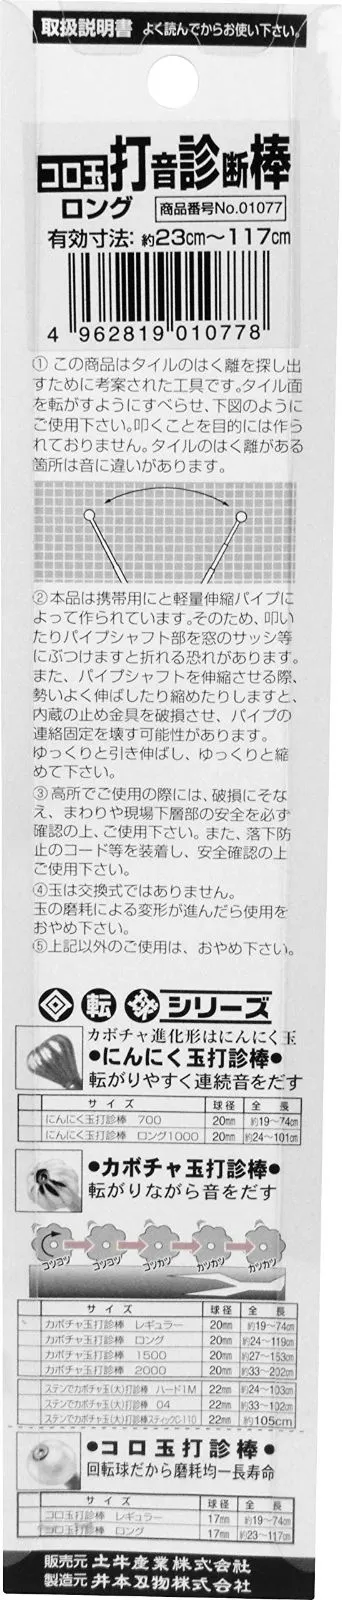 取扱説明書 よく読んでからお使い下さい。
コロ玉打音診断棒
ロング 商品番号No.01077
有効寸法:約23cm～117cm
4 962819 010778
① この商品はタイルのはく離を探し出
すために考案された工具です。タイル面
を転がすようにすべらせ、下図のように
ご使用下さい。叩くことを目的には作ら
れておりません。タイルのはく離がある
箇所は音に違いがあります。
②本品は携帯用にと軽量伸縮パイプに
よって作られています。そのため、叩い
たりパイプシャフト部を窓のサッシ等
にぶつけますと折れる恐れがあります。
また、パイプシャフトを伸縮させる際、
勢いよく伸ばしたり縮めたりしますと、
内蔵の止め金具を破損させ、パイプの
連絡固定を壊す可能性があります。
ゆっくりと引き伸ばし、ゆっくりと縮
めて下さい。
③高所でご使用の際には、破損にそな
え、まわりや現場下層部の安全を必ず
確認の上、ご使用下さい。また、落下防
止のコード等を装着し、安全確認の上
ご使用下さい。
④玉は交換式ではありません。
玉の磨耗による変形が進んだら使用を
おやめ下さい。
⑤上記以外のご使用は、おやめ下さい。
転 シリーズ
カボチャ進化形はにんにく玉
●にんにく玉打診棒●
転がりやすく連続音をだす
サイズ 球径 全長
にんにく玉打診棒 700 20mm 約19～74cm
にんにく玉打診棒 ロング1000 20mm 約24～101cm
●カボチャ玉打診棒●
転がりながら音をだす
コツコツ コツコツ コツカツ カツカツ カツカツ
サイズ 球径 全長
カボチャ玉打診棒 レギュラー 20mm 約19～74cm
カボチャ玉打診棒 ロング 20mm 約24～119cm
カボチャ玉打診棒 1500 20mm 約27～153cm
カボチャ玉打診棒 2000 20mm 約33～202cm
ステンでカボチャ玉(大)打診棒 ハード1M 22mm 約24～103cm
ステンでカボチャ玉(大)打診棒 04 22mm 約33～102cm
ステンでカボチャ玉(大)打診棒スティックC-110 22mm 約105cm
●コロ玉打診棒●
回転球だから磨耗均一長寿命
サイズ 球径 全長
コロ玉打診棒 レギュラー 17mm 約19～74cm
コロ玉打診棒 ロング 17mm 約23～117cm
販売元 土牛産業株式会社
製造元 井本刃物株式会社